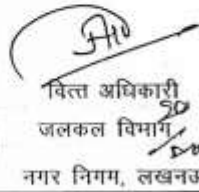 वित्त अधिकारी
जलकल विभाग
नगर निगम, लखनऊ